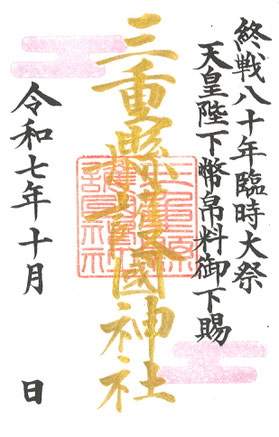 終戦八十年臨時大祭
天皇陛下幣帛料御下賜
三重縣護國神社
令和七年十月　日